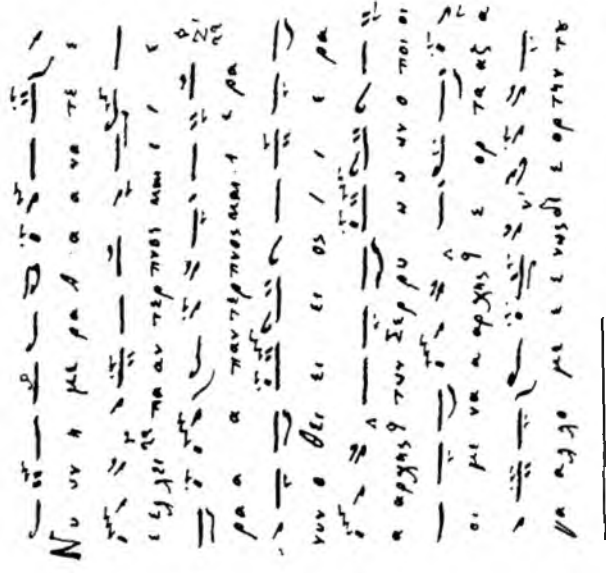 Νυ υν η με ρα α α α να τε ε
πα αν τερ πνος και ι ε
ρα α α παντερπνος και ι ε ρα
νυν ο θει ει ει ος ι ι ε ρα
α αρχης των Σερ ρω ω ω ων ο ποι οι
οι με να α αρχης ε ορ τα αξ α
γα αλλο με ε ε νως δε ε ορ την τȣ